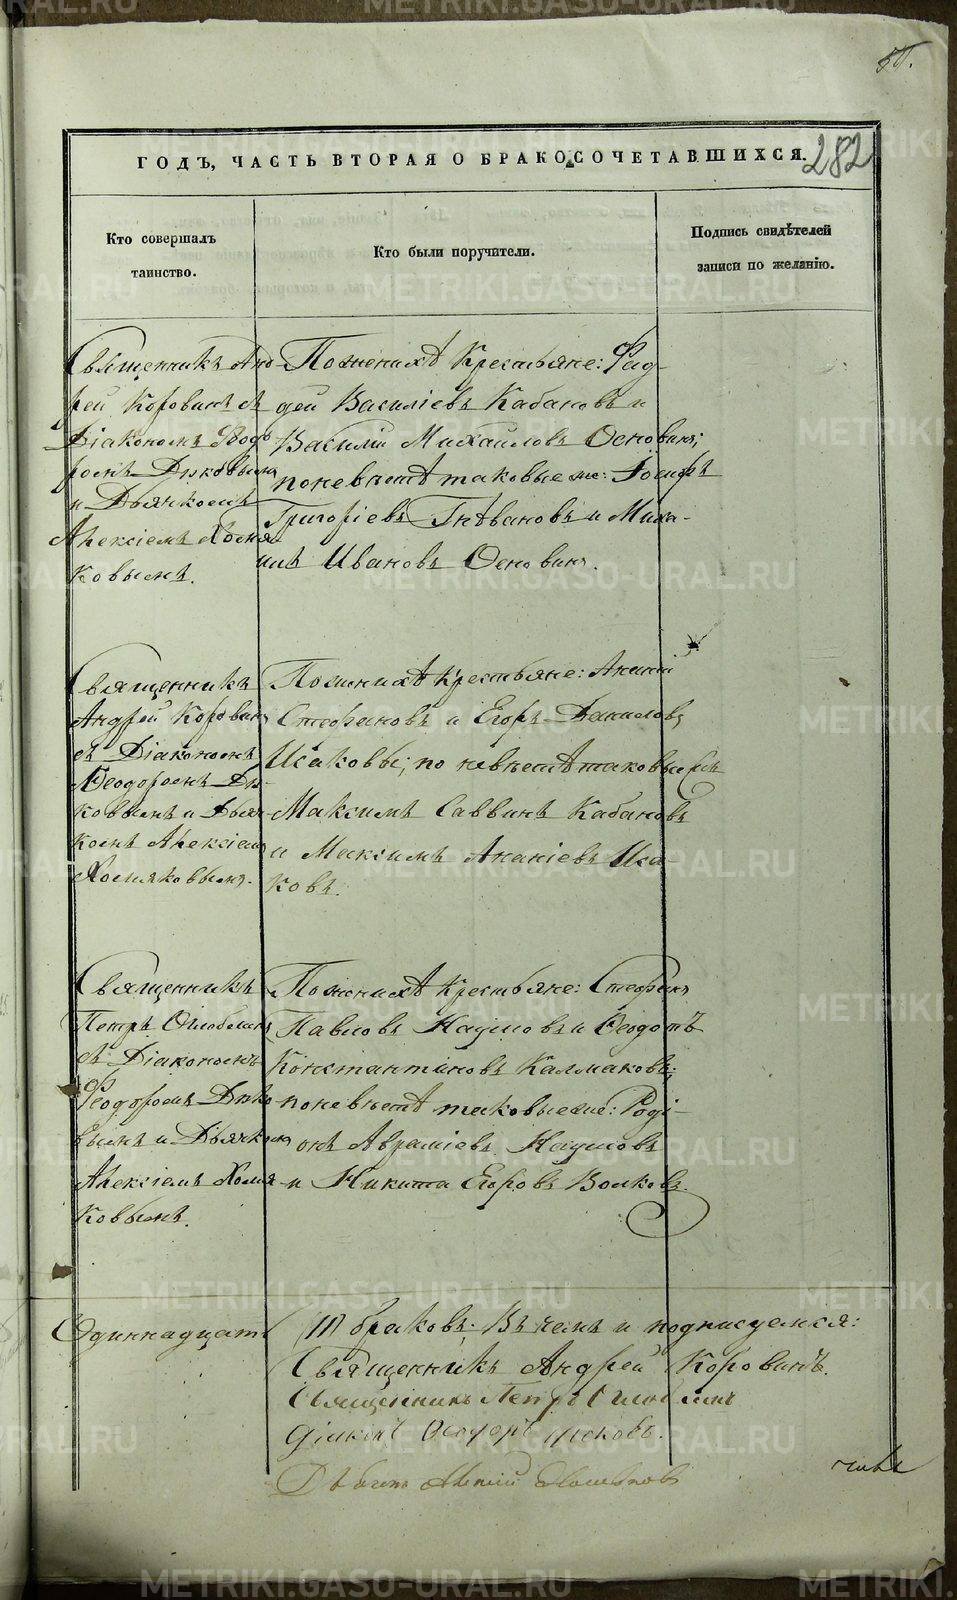 50.
282
ГОДЪ, ЧАСТЬ ВТОРАЯ О БРАКОСОЧЕТАВШИХСЯ.
Кто совершалъ
таинство.
Кто были поручители.
Подпись свидѣтелей
записи по желанію.
Священникъ Анд-
рей Коровинъ съ
Діакономъ Ѳеодо
ромъ Дьковымъ
и Дьячкомъ
Алексіемъ Хомя
ковымъ.
По женихѣ Крестьяне: Фад-
дей Василіевъ Кабановъ и
Василій Михайловъ Основинъ;
по невѣстѣ таковые же: Іосифъ
Григоріевъ Гнѣвановъ и Миха-
илъ Ивановъ Основинъ.
Священникъ
Андрей Коровинъ
съ Діакономъ
Ѳеодоромъ Дь-
ковымъ и Дьяч-
комъ Алексіемъ
Хомяковымъ.
По женихѣ Крестьяне: Ананій
Стефановъ и Егоръ Даниловъ
Исаковы; по невѣстѣ таковые же
Максимъ Саввинъ Кабановъ
и Максимъ Ананіевъ Иса-
ковъ.
Священникъ
Петръ Оглоблинъ
съ Діакономъ
Феодоромъ Дько
вымъ и Дьячкомъ
Алексіемъ Хомя-
ковымъ.
По женихѣ Крестьяне: Стефанъ
Павловъ Наумовъ и Ѳеодотъ
Константиновъ Калмаковъ;
по невѣстѣ таковые же: Роді-
онъ Авраміевъ Наумовъ
и Никита Егоровъ Волковъ.
Одиннадцать (11) браковъ. Въ чемъ и подписуемся:
Священникъ Андрей Коровинъ.
Священникъ Петръ Оглоблинъ
Діаконъ Ѳеодоръ Дьковъ.
Дьячекъ Алексій Хомяковъ
METRIKI.GASO-URAL.RU